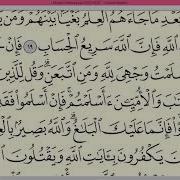 ـعْدِ مَا جَآءَهُمُ ٱلْعِلْمُ بَغْيًۢا بَيْنَهُمْ وَمَن
ٱللَّهِ فَإِنَّ ٱللَّهَ سَرِيعُ ٱلْحِسَابِ ١٩ فَإِنْ
ـلَمْتُ وَجْهِيَ لِلَّهِ وَمَنِ ٱتَّبَعَنِ وَقُل لِّلَّذِينَ
ـتَٰبَ وَٱلْأُمِّيِّـۧنَ ءَأَسْلَمْتُمْ فَإِنْ أَسْلَمُوا۟ فَقَدِ
ـوْا۟ فَإِنَّمَا عَلَيْكَ ٱلْبَلَٰغُ وَٱللَّهُ بَصِيرٌۢ بِٱلْعِـ
ـينَ يَكْفُرُونَ بِـَٔايَٰتِ ٱللَّهِ وَيَقْتُلُونَ